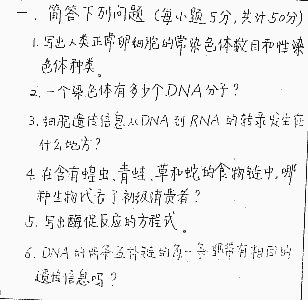 一. 简答下列问题 (每小题5分, 共计50分)
1. 写出人类正常卵细胞的常染色体数目和性染
色体种类。
2. 一个染色体有多少个DNA分子?
3. 细胞遗传信息从DNA到RNA的转录发生在
什么地方?
4. 在含有蝗虫、青蛙、草和蛇的食物链中, 哪
种生物代表了初级消费者?
5. 写出酶促反应的方程式。
6. DNA的两条互补链的每一条都带有相同的
遗传信息吗?